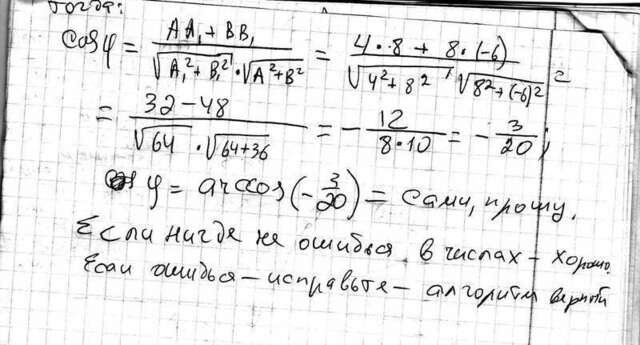 тогда:
cos φ = (AA₁ + BB₁) / (√(A₁² + B₁²) · √(A² + B²)) = (4·8 + 8·(-6)) / (√(4² + 8²) · √(8² + (-6)²)) =
= (32 - 48) / (√64 · √(64+36)) = - 12 / (8·10) = - 3/20;
φ = arccos(- 3/20) = сами, прошу.
Если нигде не ошибься в числах - хорошо
Если ошибься - исправьте - алгоритм верный